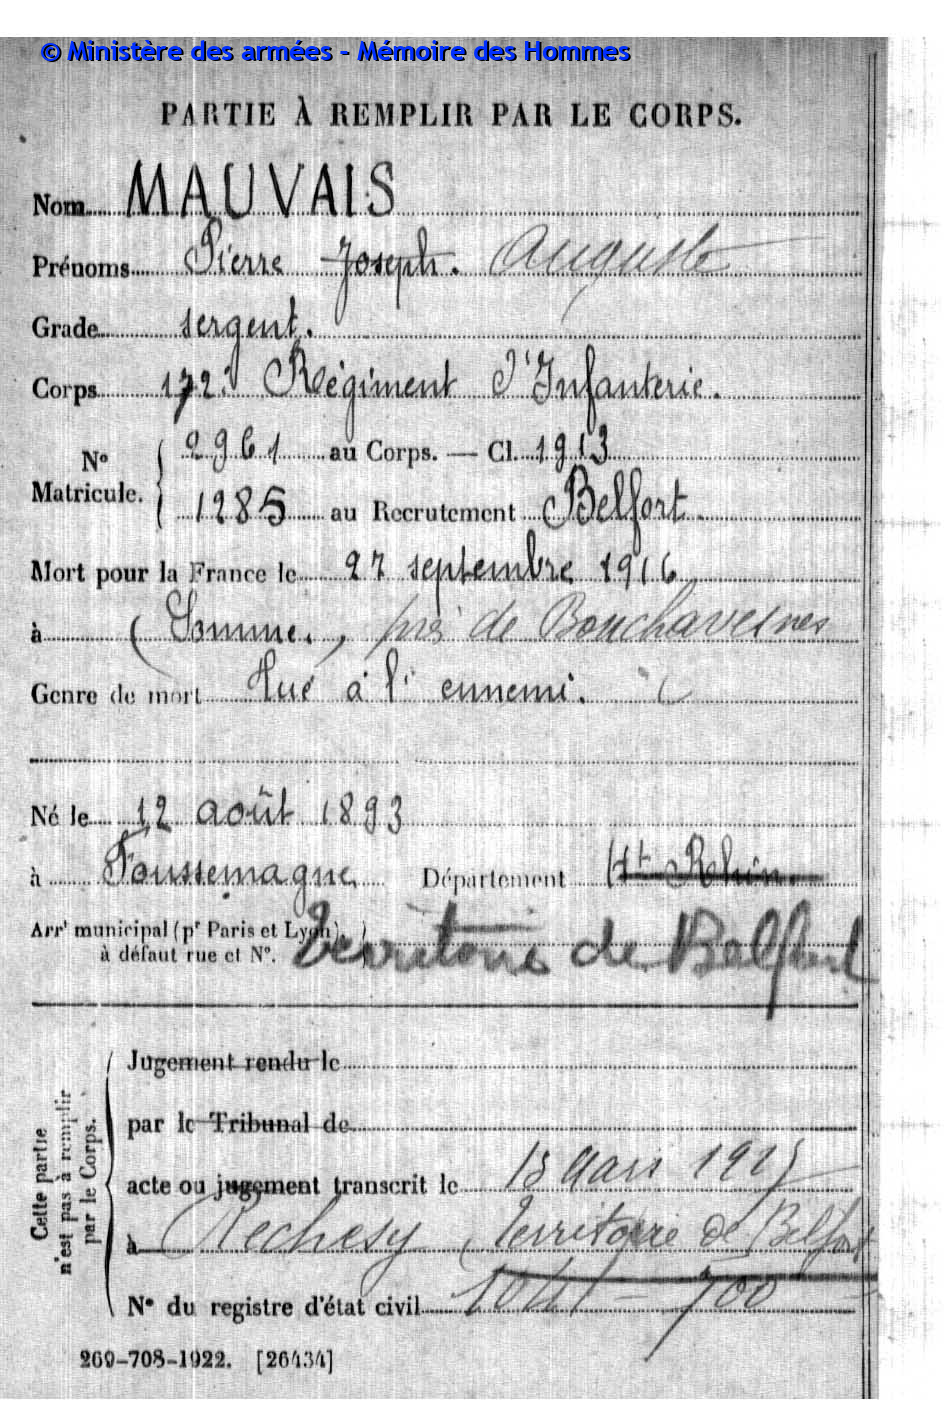 © Ministère des armées - Mémoire des Hommes
PARTIE À REMPLIR PAR LE CORPS.
Nom MAUVAIS
Prénoms Pierre Joseph. Auguste
Grade sergent.
Corps 172e Régiment d'Infanterie.
N° Matricule. 2961 au Corps. — Cl. 1913
1285 au Recrutement Belfort.
Mort pour la France le 27 septembre 1916
à (Somme., près de Bouchavesnes
Genre de mort Tué à l'ennemi.
Né le 12 août 1893
à Foussemagne Département Ht Rhin.
Arrt municipal (pr Paris et Lyon),
à défaut rue et N°. Territoire de Belfort
Cette partie n'est pas à remplir par le Corps.
Jugement rendu le
par le Tribunal de
acte ou jugement transcrit le 18 Mars
à Rechesy (Territoire de Belfort
N° du registre d'état civil
269-708-1922. [26434]